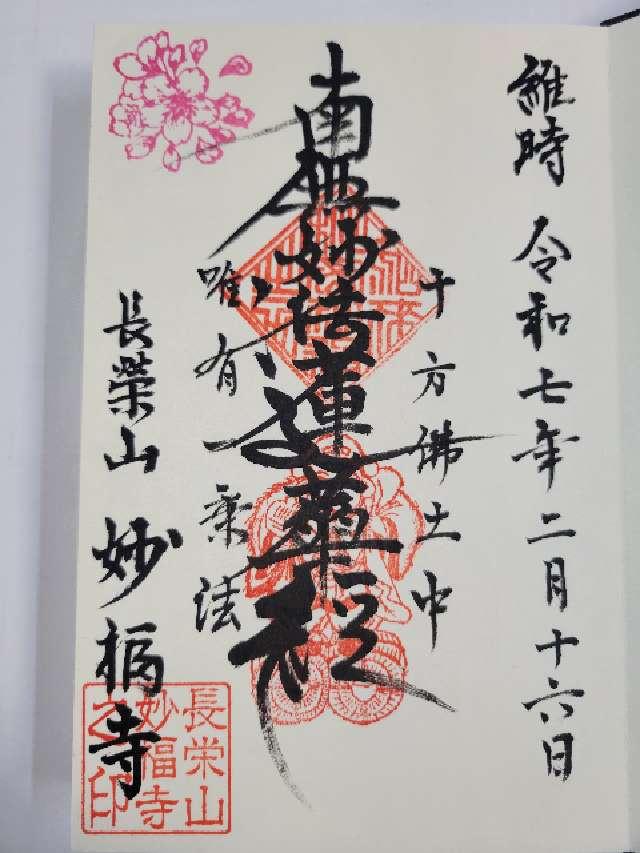 維時 令和七年二月十六日
十方佛土中
南無妙法蓮華経
唯有 乘法
長榮山 妙福寺
長栄山
妙福寺
之印